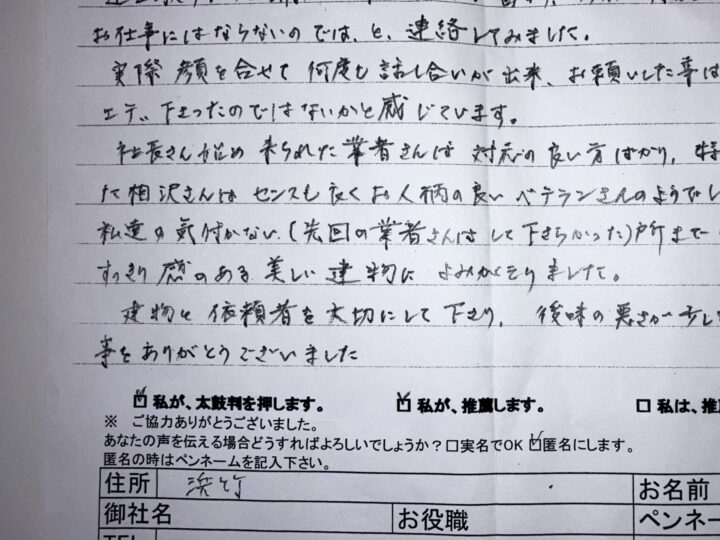 お仕事にはならないのでは、と、連絡してみました。
実際顔を合せて何度も話し合いが出来、お願いした事は
エデ、下さったのではないかと感じています。
社長さん始め来られた業者さんは対応の良い方ばかり、特
た相沢さんはセンスも良くお人柄の良いベテランさんのようでし
私達の気付かない(先回の業者さんはして下さらかった)所まで
すっきり感のある美しい建物によみがえりました。
建物と依頼者を大切にして下さり、後味の悪さが少し
事をありがとうございました
私が、太鼓判を押します。 私が、推薦します。 □私は、推
※ ご協力ありがとうございました。
あなたの声を伝える場合どうすればよろしいでしょうか?□実名でOK ☑匿名にします。
匿名の時はペンネームを記入下さい。
住所 浜竹 お名前
御社名 お役職 ペンネー
TEL